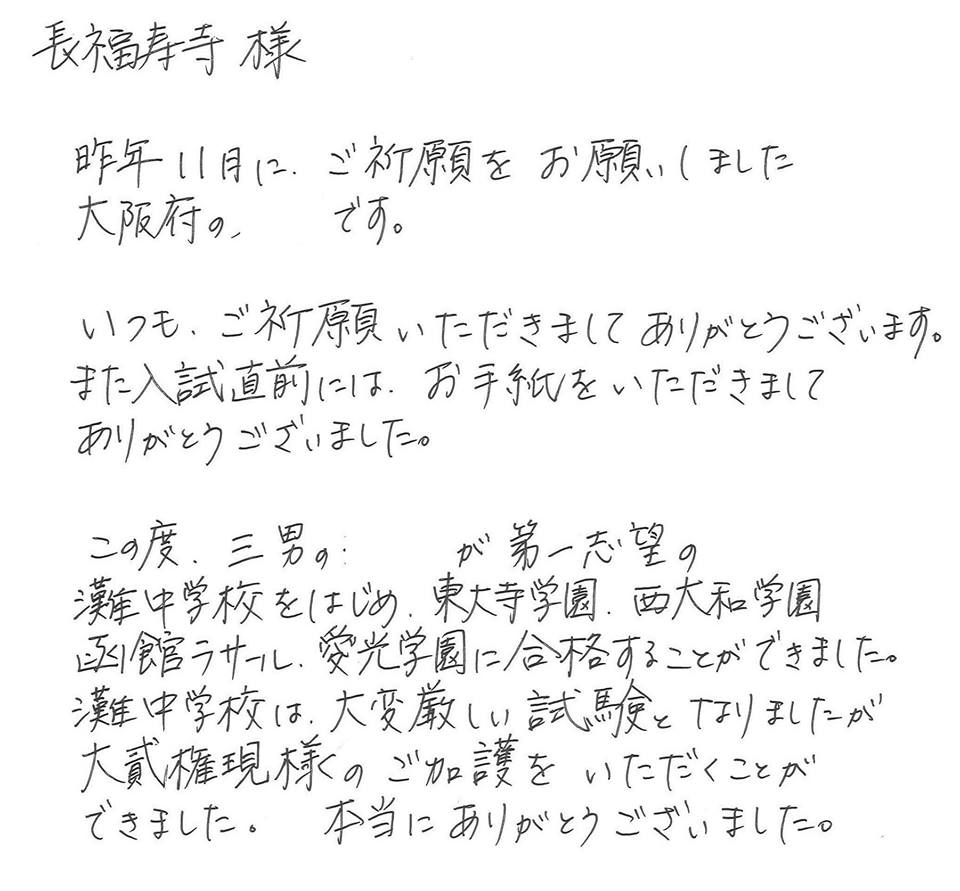 長福寿寺 様
昨年11月に、ご祈願をお願いしました
大阪府の、 です。
いつも、ご祈願いただきましてありがとうございます。
また入試直前には、お手紙をいただきまして
ありがとうございました。
この度、三男の が第一志望の
灘中学校をはじめ、東大寺学園、西大和学園
函館ラサール、愛光学園に合格することができました。
灘中学校は、大変厳しい試験となりましたが
大貳権現様のご加護をいただくことが
できました。 本当にありがとうございました。